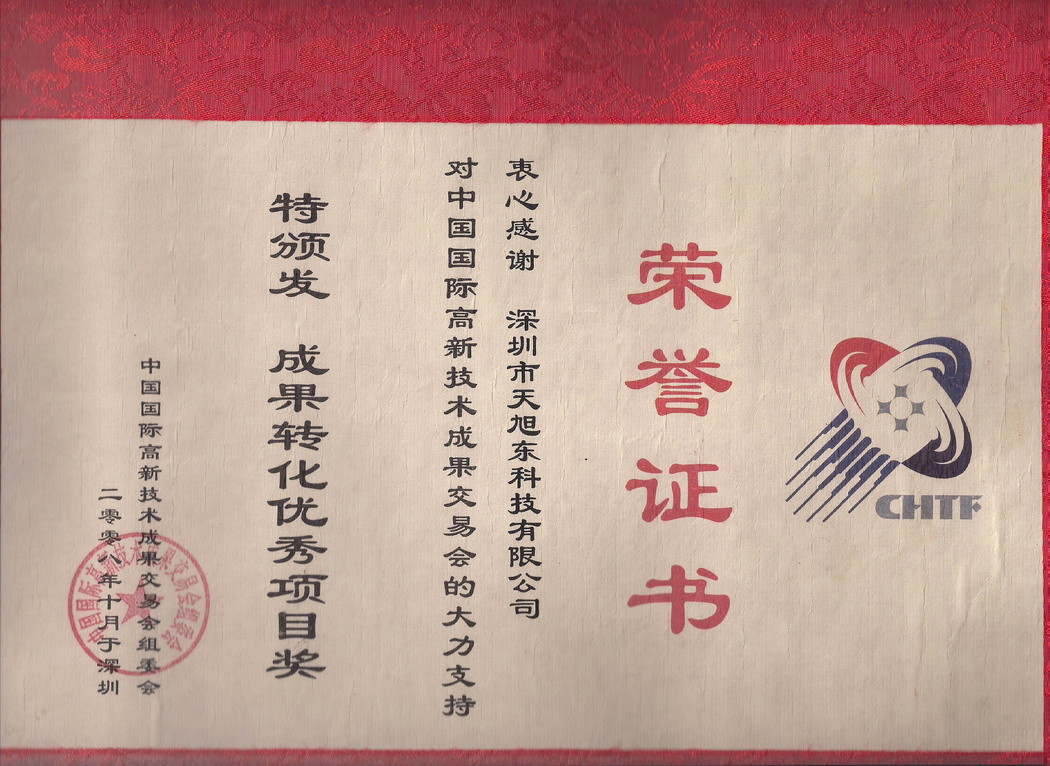 CHTF
荣誉证书
衷心感谢 深圳市天旭东科技有限公司
对中国国际高新技术成果交易会的大力支持
特颁发 成果转化优秀项目奖
中国国际高新技术成果交易会组委会
二零零八年十月于深圳
中国国际高新技术成果交易会组委会